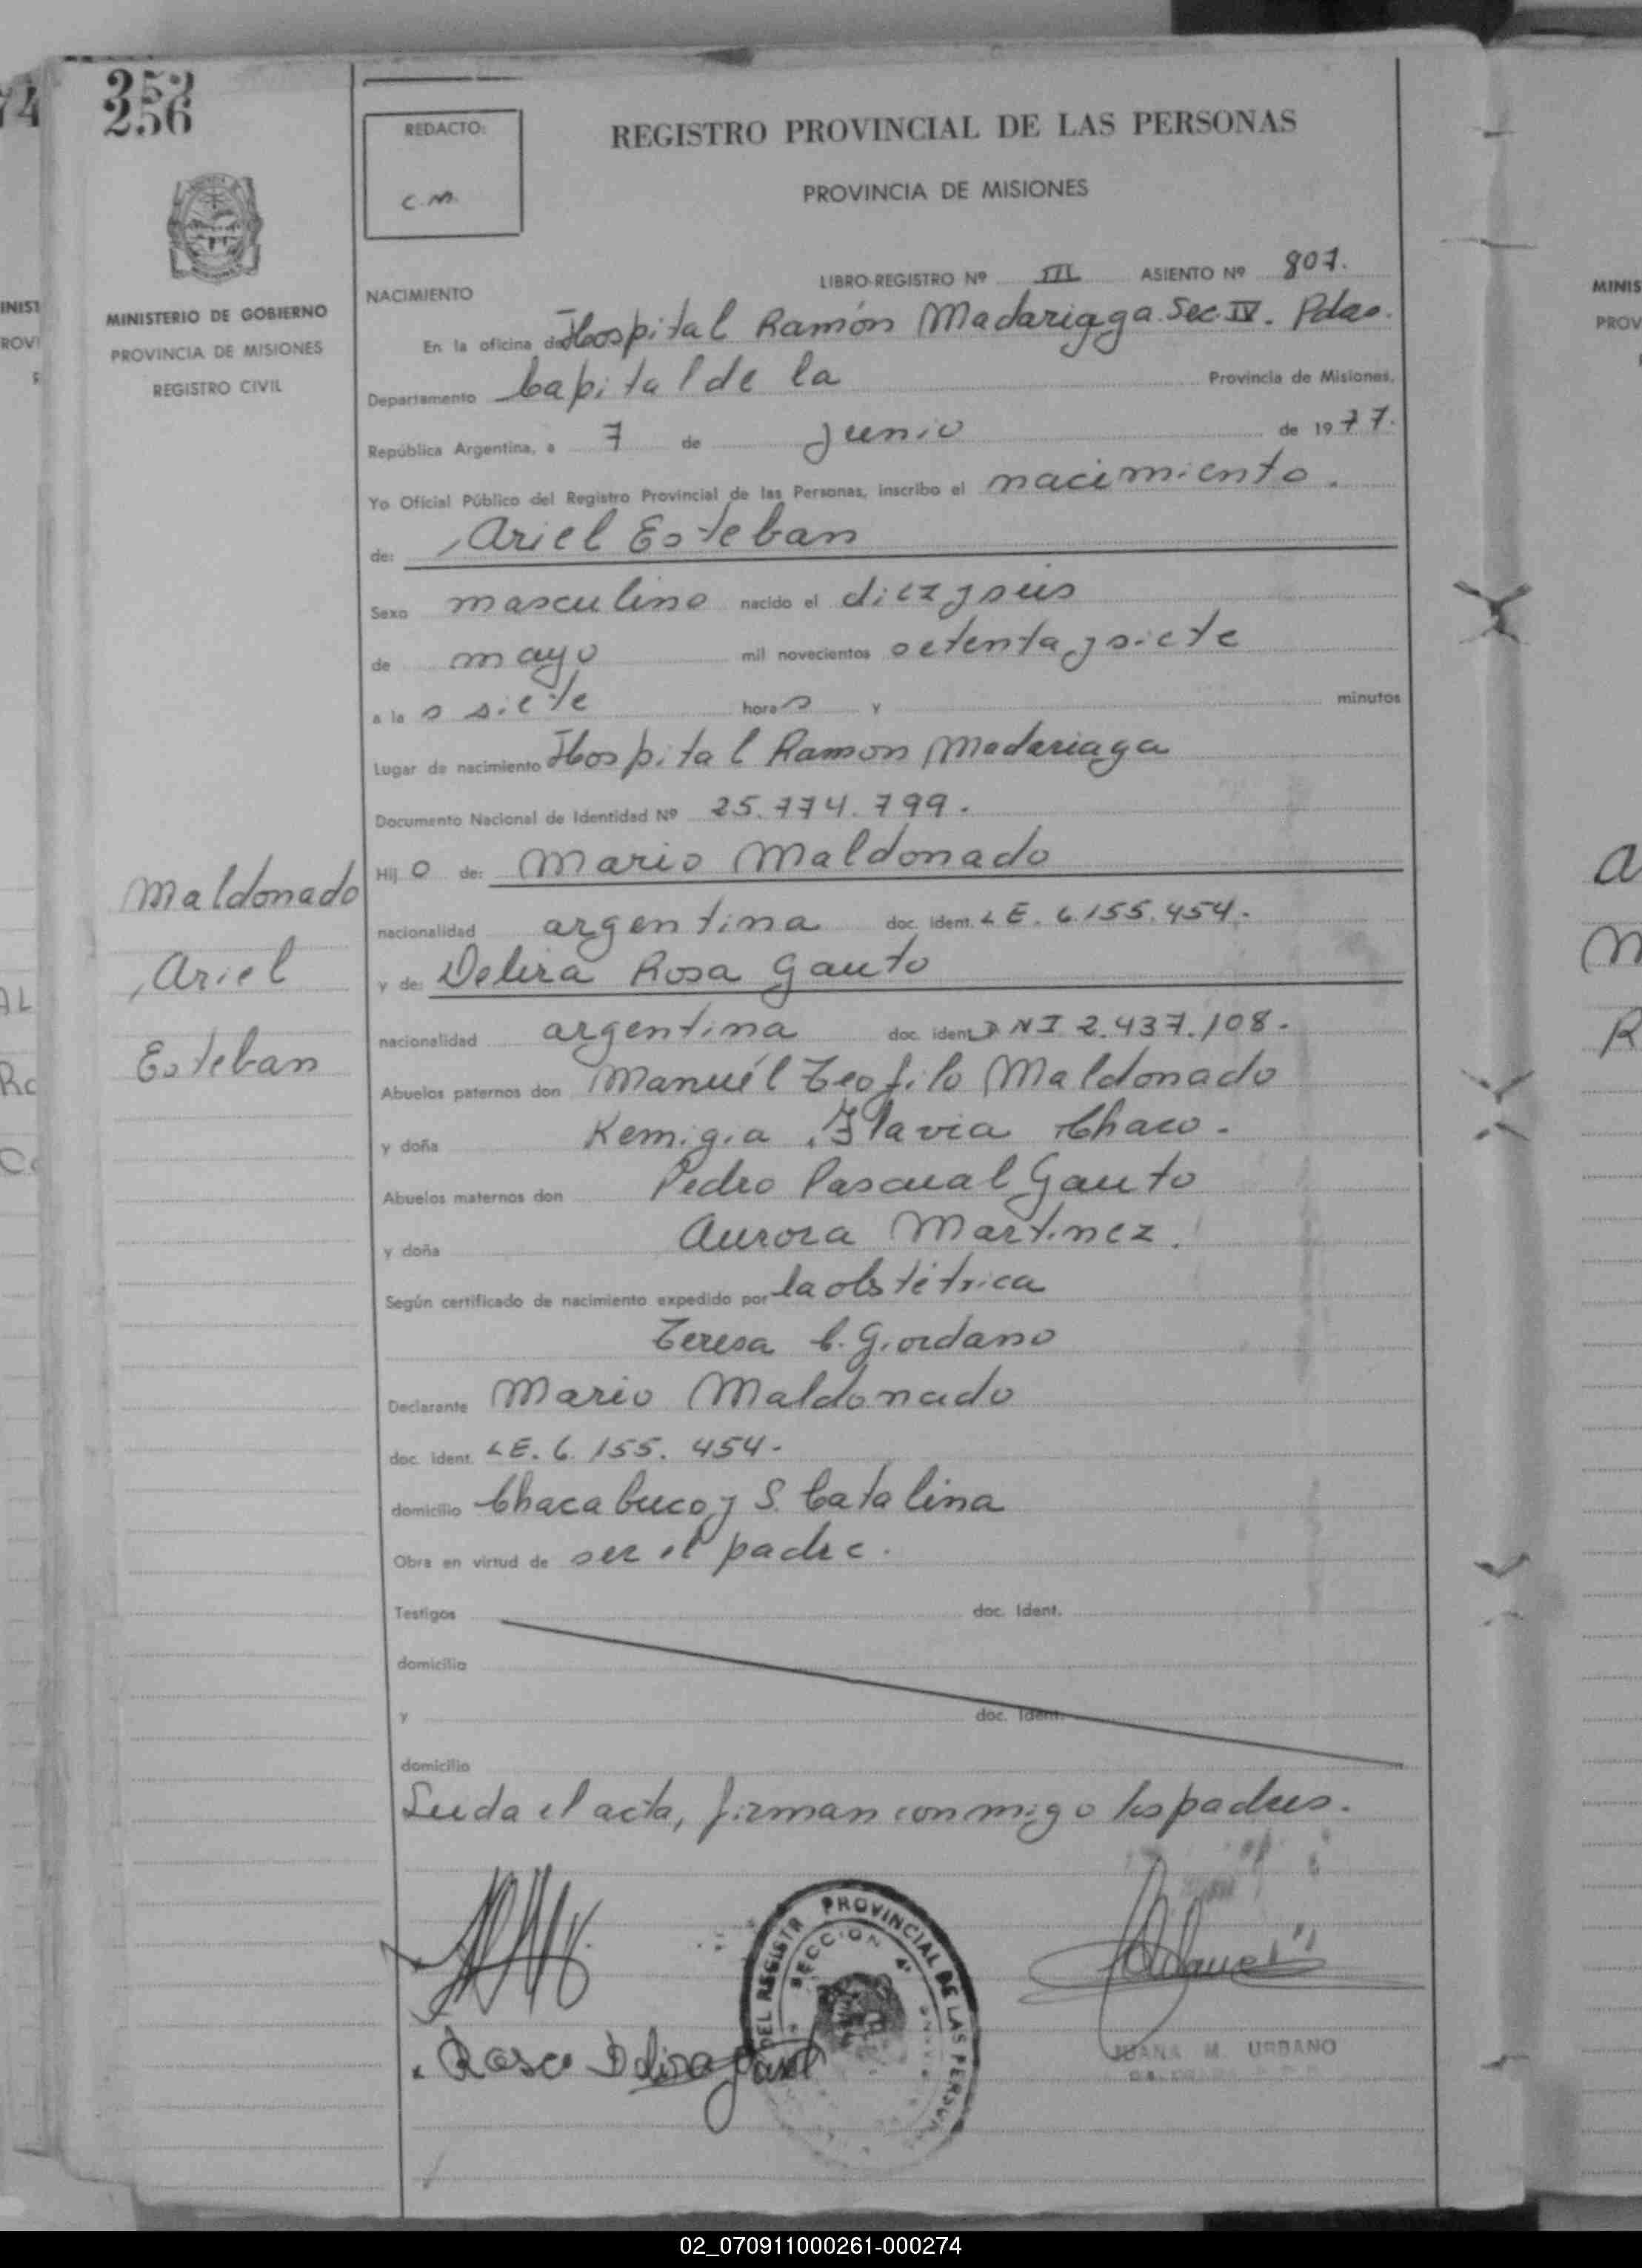 353
256
REDACTO:
C.M.
REGISTRO PROVINCIAL DE LAS PERSONAS
PROVINCIA DE MISIONES
MINISTERIO DE GOBIERNO
PROVINCIA DE MISIONES
REGISTRO CIVIL
LIBRO-REGISTRO Nº III ASIENTO Nº 807.
NACIMIENTO
En la oficina de Hospital Ramón Madariaga Sec. IV. Pdas.
Departamento Capital de la Provincia de Misiones,
República Argentina, a 7 de Junio de 1977.
Yo Oficial Público del Registro Provincial de las Personas, inscribo el nacimiento.
de: Ariel Esteban
Sexo masculino nacido el diez y seis
de mayo mil novecientos setenta y siete
a la s siete hora s y minutos
Lugar de nacimiento Hospital Ramon Madariaga
Documento Nacional de Identidad Nº 25.774.799.
Hij o de: Mario Maldonado
nacionalidad argentina doc. ident. LE. 6.155.454.
y de: Delira Rosa Gauto
nacionalidad argentina doc. ident. DNI 2.437.108.
Abuelos paternos don Manuél Teofilo Maldonado
y doña Remigia Flavia Chaco.
Abuelos maternos don Pedro Pascual Gauto
y doña Aurora Martinez.
Según certificado de nacimiento expedido por la obstétrica
Teresa C. Giordano
Declarante Mario Maldonado
doc. ident. LE. 6.155.454.
domicilio Chacabuco y S. Catalina
Obra en virtud de ser el padre.
Testigos doc. ident.
domicilio
y doc. ident.
domicilio
Leida el acta, firman conmigo los padres.
Maldonado
Ariel
Esteban
DEL REGISTR PROVINCIAL DE LAS PERSON
SECCION 4ª
Rosa Delira Gauto
JUANA M. URBANO
02_070911000261-000274